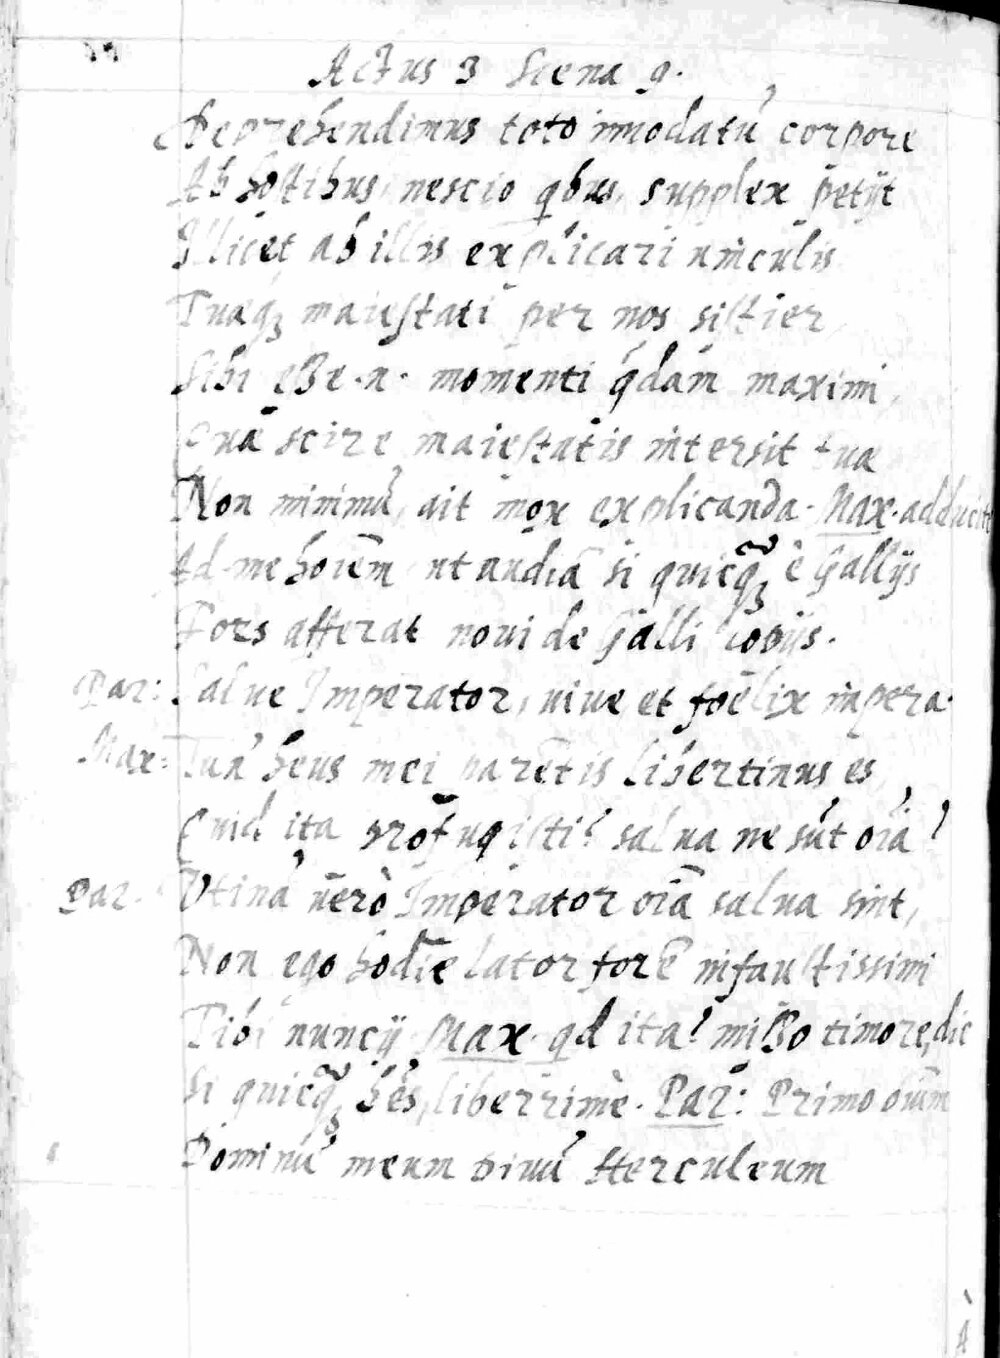 Actus 3 Scena 9.
Deprehendimus toto nnodatũ corpore
Ab hostibus, nescio qbus, supplex petijt
Illicet ab illis explicari uinculis
Tuaeq3 maiestati per nos sistier,
Sibi eße .n. momenti q́dam maximi,
Quã scire maiestatis intersit tua
Non minimũ, ait mox explicanda. Max. adducite
Ad me hoiẽm ut audiã si quicq̃3 è Gallijs
Fors afferat noui de Galli copijs.
Par: Salue Imperator, uiue et foelix impera.
Max: Tun' heus mei parẽtis libertinus es,
Quid ita profugisti? salua ne sũt oĩa?
Par. Vtinã uerò Imperator oĩa salua sint,
Non ego hodie lator forẽ infaustissimi
Tibi nuncij Max. qd ita? mißo timore, dic
Si quicq̃3 hẽs, liberrimè. Par: Primo oĩum
Dominũ meum diuũ Herculeum